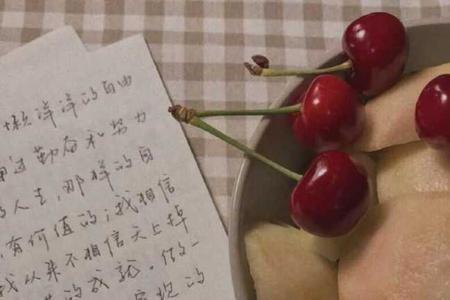 懒洋洋的自由
过勤奋和努力
的人生,那样的自
有价值的;我相信
我从来不相信天上掉
的成就。做一
实现的